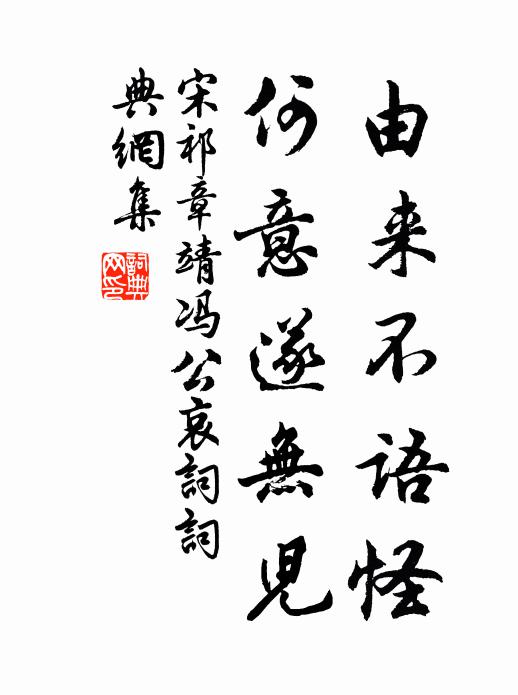 由来不语怪
何意遂無児
宋祁章靖冯公哀詞詞
典網集
詞典网印